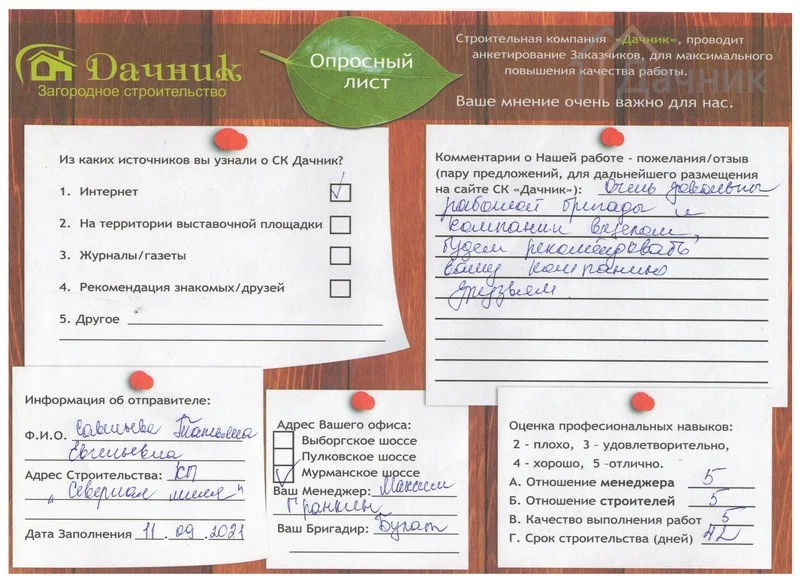 Дачник
Загородное строительство
Опросный
лист
Строительная компания «Дачник», проводит
анкетирование Заказчиков, для максимального
повышения качества работы.
Ваше мнение очень важно для нас.
Дачник
Из каких источников вы узнали о СК Дачник?
1. Интернет
2. На территории выставочной площадки
3. Журналы/газеты
4. Рекомендация знакомых/друзей
5. Другое
Комментарии о Нашей работе - пожелания/отзыв
(пару предложений, для дальнейшего размещения
на сайте СК «Дачник»): Очень довольны
работой бригады и
компании в целом,
будем рекомендовать
вашу компанию
друзьям.
Информация об отправителе:
Ф.И.О. Савельева Татьяна
Евгеньевна
Адрес Строительства: КП
"Северная миля"
Дата Заполнения 11.09.2021
Адрес Вашего офиса:
Выборгское шоссе
Пулковское шоссе
Мурманское шоссе
Ваш Менеджер: Максим
Пранкин
Ваш Бригадир: Булат
Оценка профессиональных навыков:
2 - плохо, 3 - удовлетворительно,
4 - хорошо, 5 -отлично.
А. Отношение менеджера 5
Б. Отношение строителей 5
В. Качество выполнения работ 5
Г. Срок строительства (дней) 42